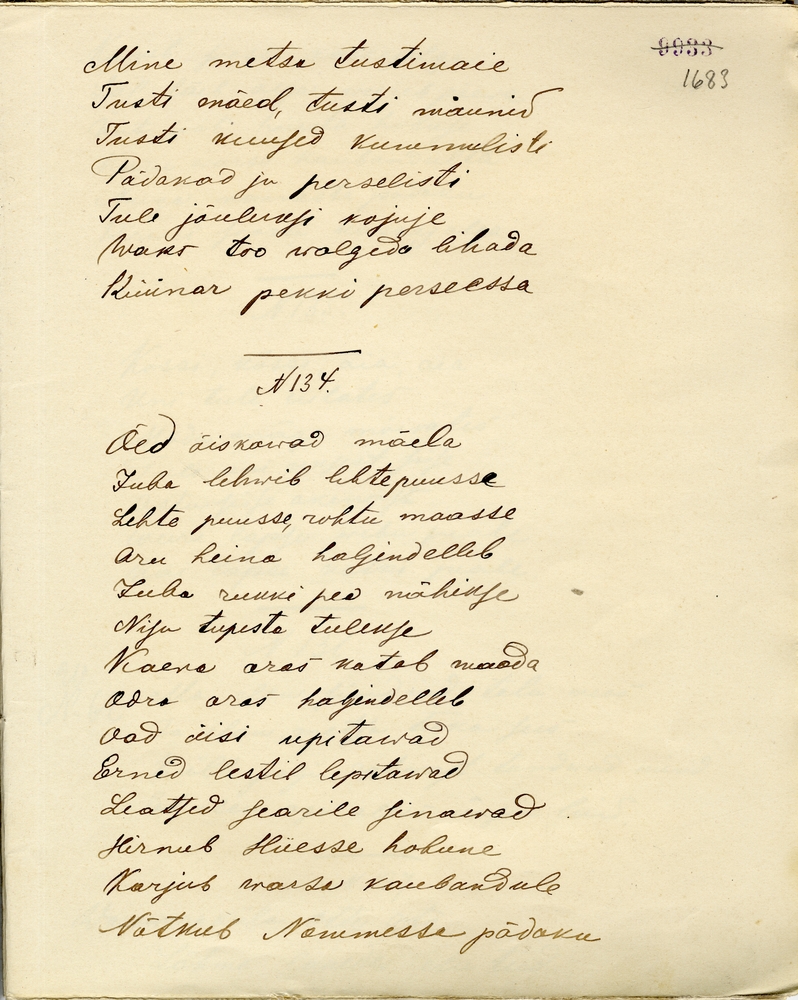 9933
1683
Mine metsa tustimaie
Tusti mäed, tusti männid
Tusti kuused kummulisti
Pädakad ju perselisti
Tule jõuluksi kojuje
Waks too walgeda lihada
Küünar pekki perseessa
N 134.
Õed õiskawad mäela
Juba lehwib lehtepuusse
Lehte puusse, rohtu maasse
Aru heina haljendelleb
Juba rukki pea nähikse
Nisu tupesta tulekse
Kaera oras katab maada
Odra oras haljendelleb
Oad õisi upitawad
Erned lestil lepitawad
Leatsed searile sinawad
Hirnub Hiiesse hobune
Karjub warsa kaubandule
Nõtkub Nõmmesse pädaka